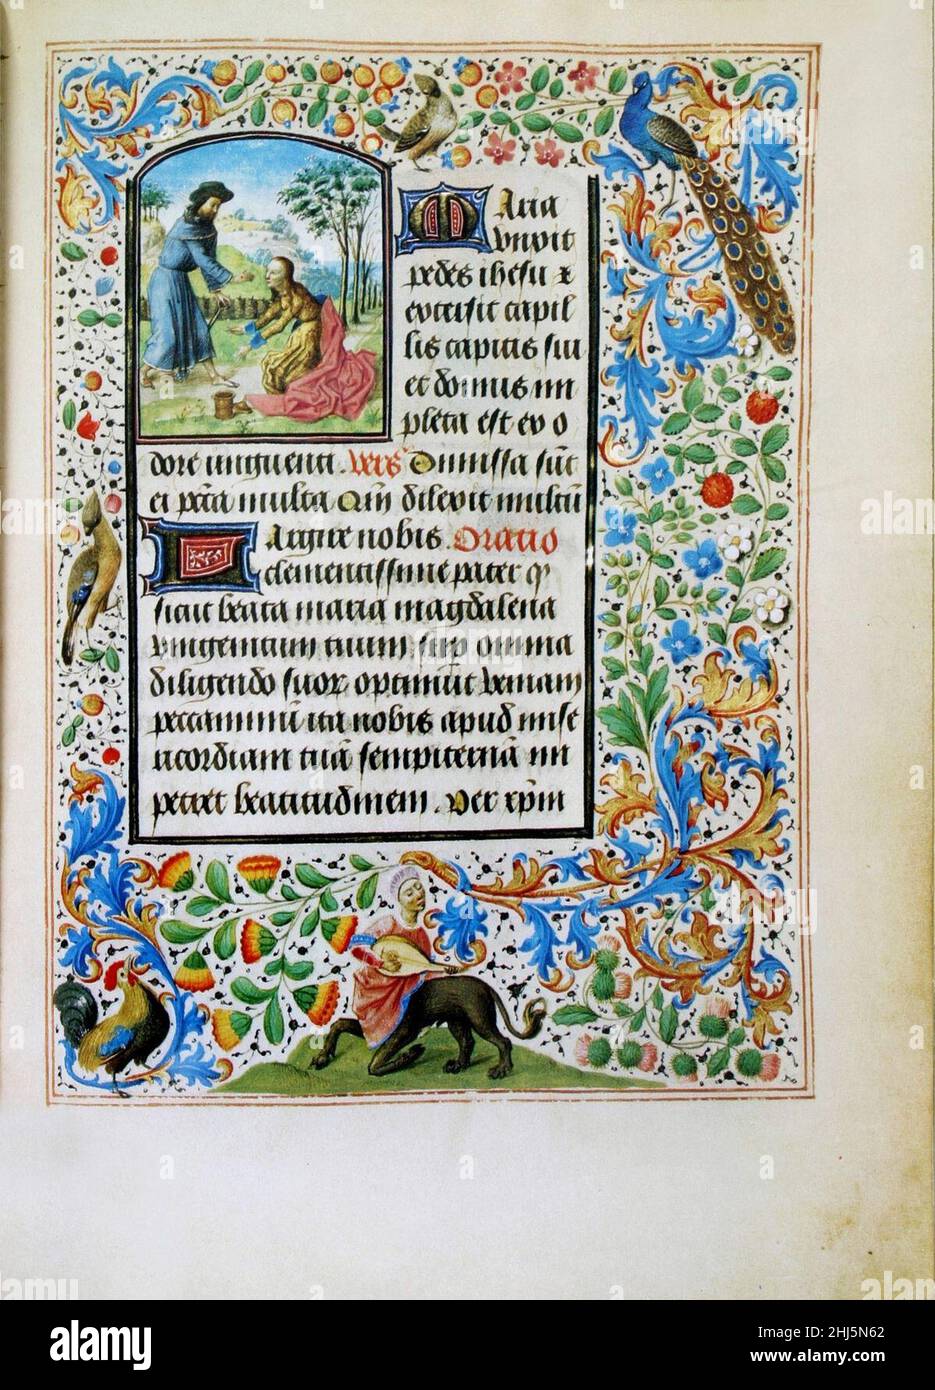 Maria
vnxit
pedes ihesu x
extersit capil
lis capitis sui
et domus im
pleta est ex o
dore unguenti. Vers Dimissa sūt
ei pctā multa Qm̄ dilexit multū
Largire nobis. Oratio
clementissime pater q
sicut beata maria magdalena
vnigenitum tuum sup omnia
diligendo suor̄ optinuit veniam
peccaminū ita nobis apud mise
ricordiam tuā sempiternā im
petret beatitudinem. Per xpm
alamy
alamy
Image ID: 2HJ5N62
www.alamy.com